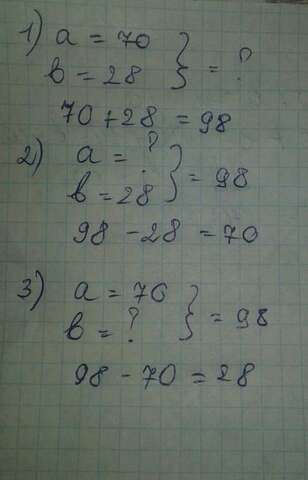 1) a = 70
в = 28 } = ?
70 + 28 = 98
2) a = ?
в = 28 } = 98
98 - 28 = 70
3) a = 70
в = ? } = 98
98 - 70 = 28